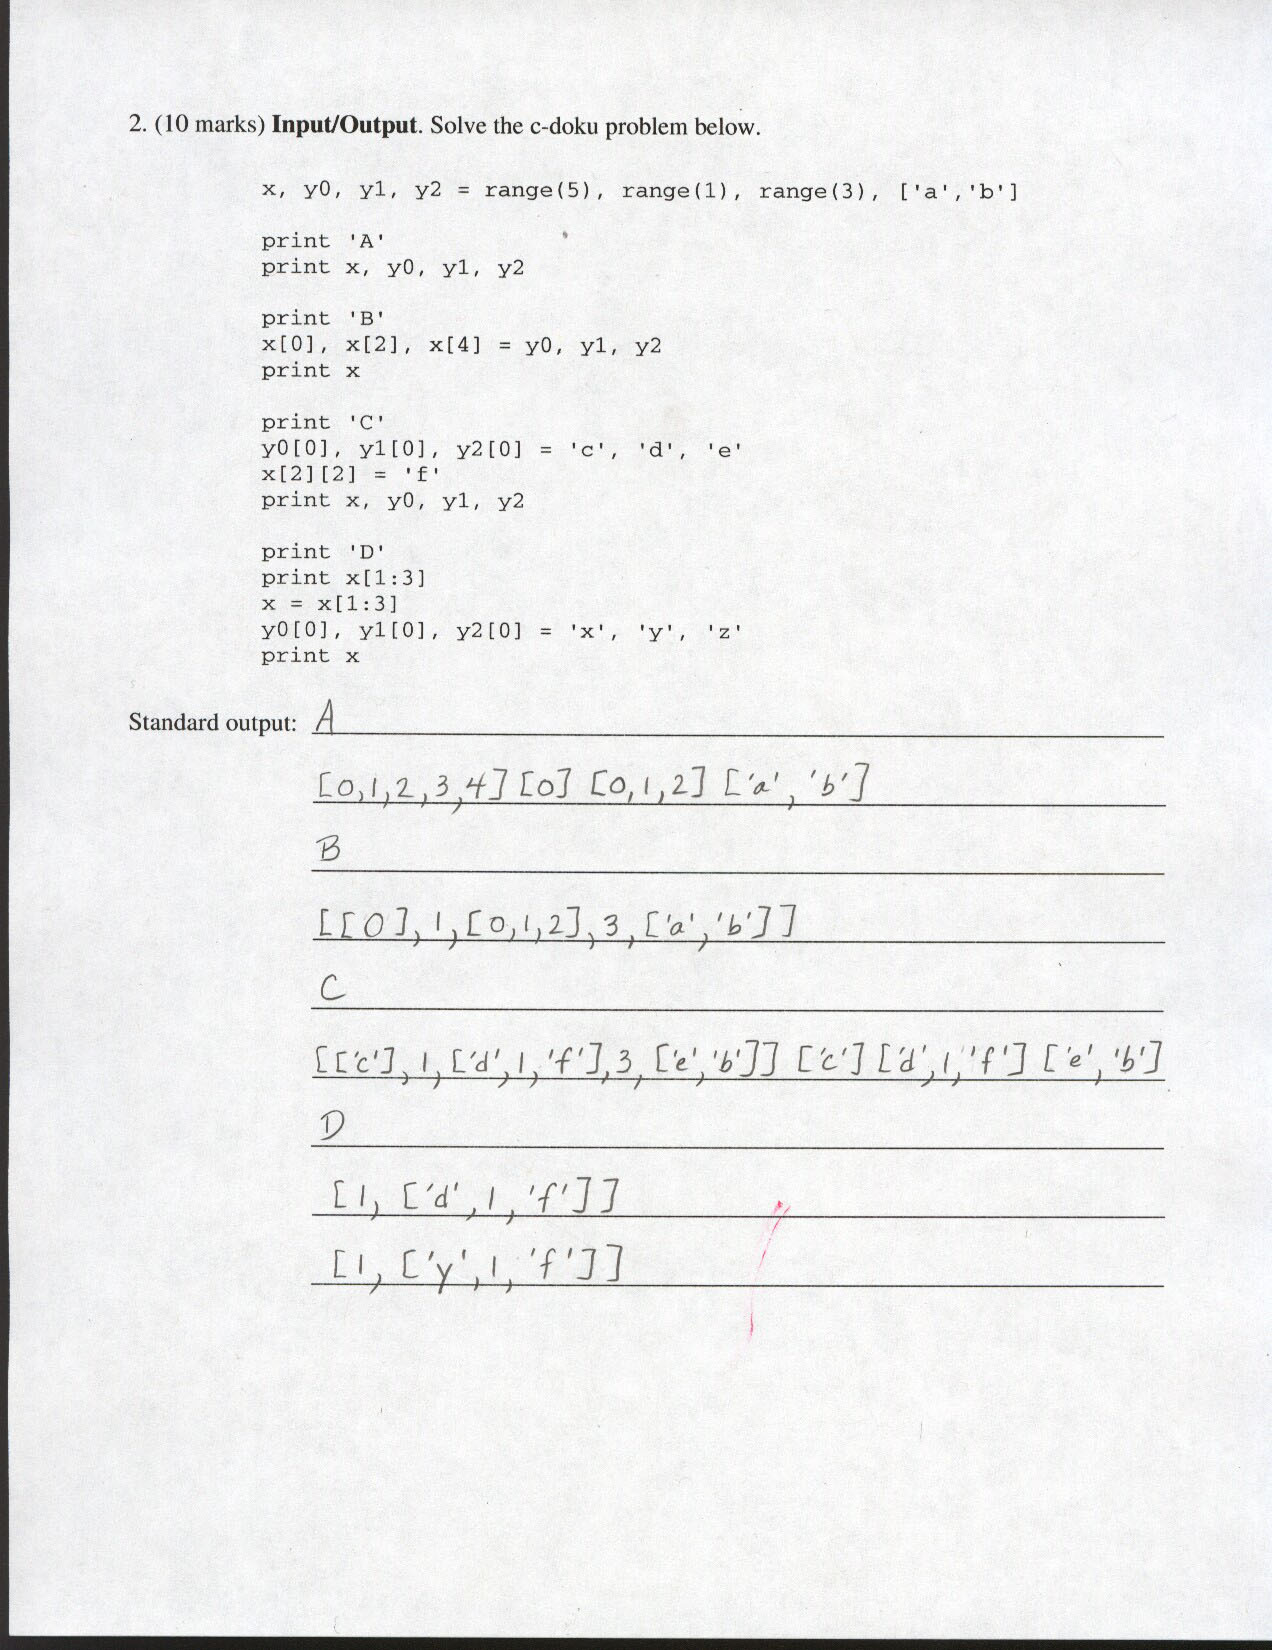 2. (10 marks) Input/Output. Solve the c-doku problem below.
x, y0, y1, y2 = range(5), range(1), range(3), ['a','b']
print 'A'
print x, y0, y1, y2
print 'B'
x[0], x[2], x[4] = y0, y1, y2
print x
print 'C'
y0[0], y1[0], y2[0] = 'c', 'd', 'e'
x[2][2] = 'f'
print x, y0, y1, y2
print 'D'
print x[1:3]
x = x[1:3]
y0[0], y1[0], y2[0] = 'x', 'y', 'z'
print x
Standard output: A
[0,1,2,3,4] [0] [0,1,2] ['a', 'b']
B
[[0], 1, [0,1,2], 3, ['a', 'b']]
C
[['c'], 1, ['d', 1, 'f'], 3, ['e', 'b']] ['c'] ['d', 1, 'f'] ['e', 'b']
D
[1, ['d', 1, 'f']]
[1, ['y', 1, 'f']]